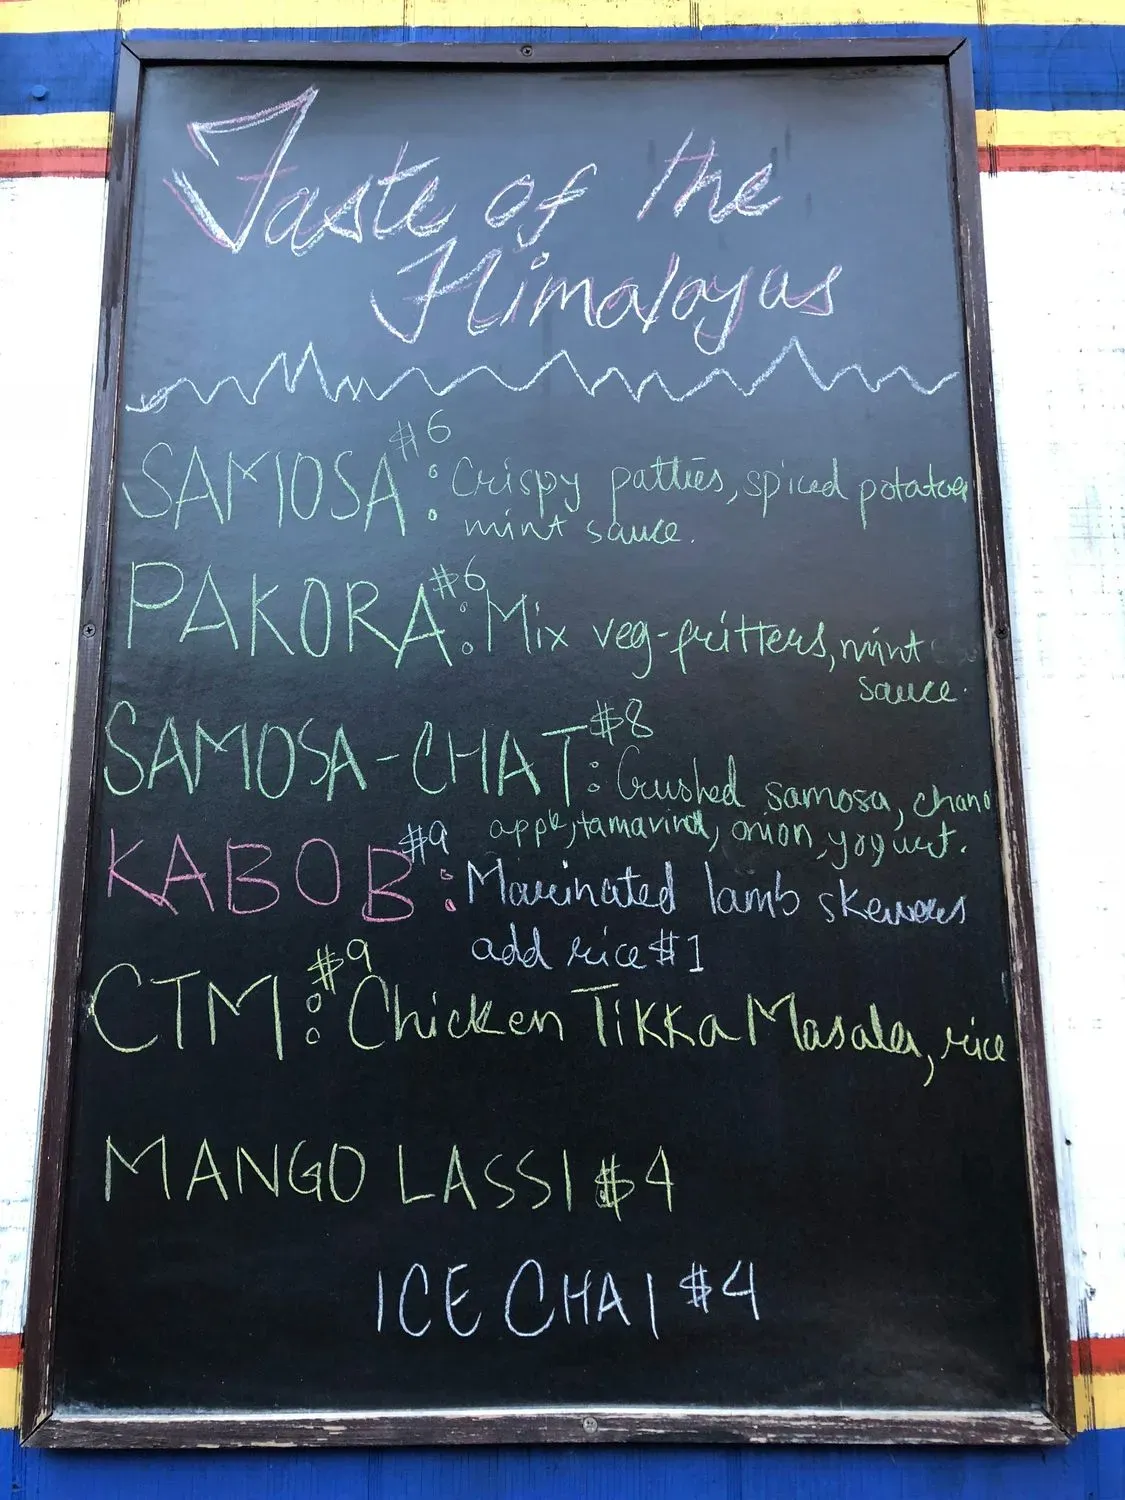 Taste of the
Himalayas
SAMOSA $6 : Crispy patties, spiced potatoes
mint sauce.
PAKORA $6 : Mix veg-fritters, mint
sauce.
SAMOSA-CHAT $8 : Crushed samosa, chana
apple, tamarind, onion, yogurt.
KABOB $9 : Marinated lamb skewers
add rice $1
CTM $9 : Chicken Tikka Masala, rice
MANGO LASSI $4
ICE CHAI $4